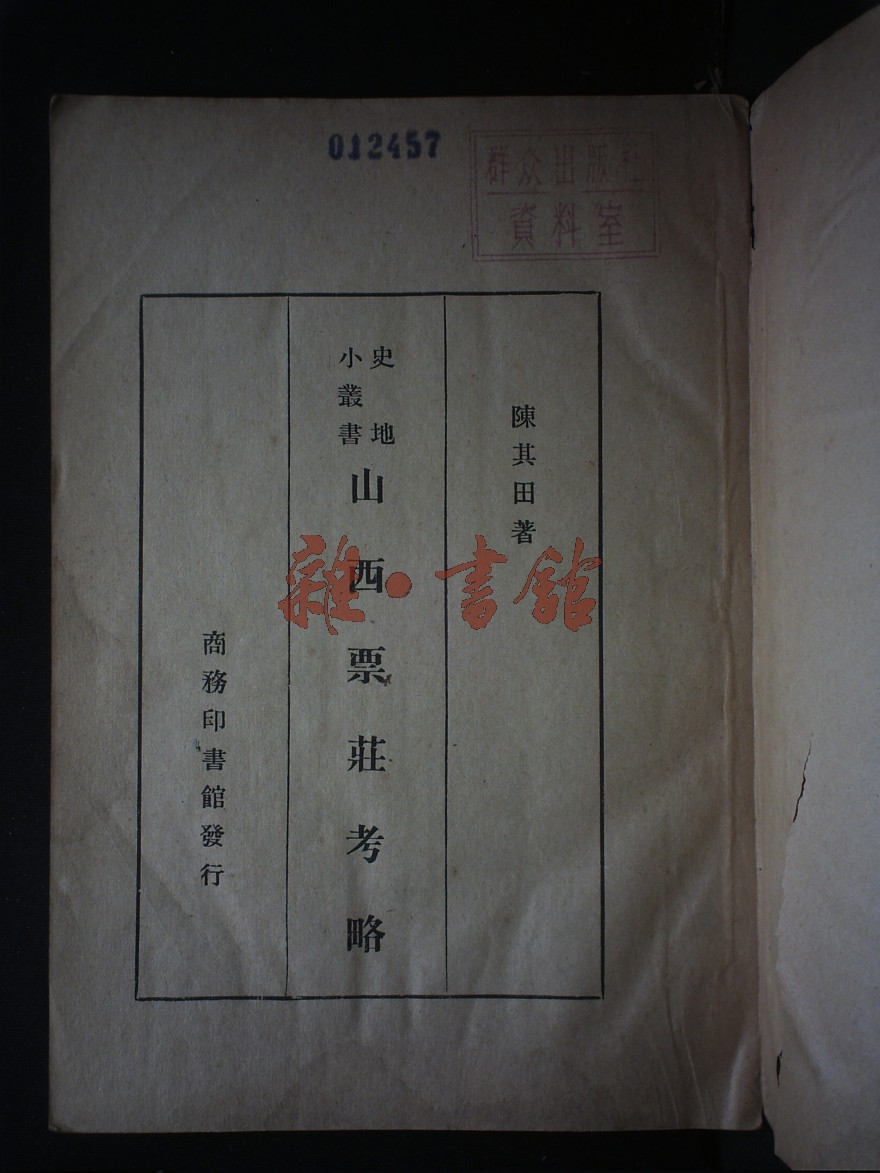 012457
群众出版社
資料室
陳其田著
史地
小叢書
山西票莊考略
雜·書館
商務印書館發行